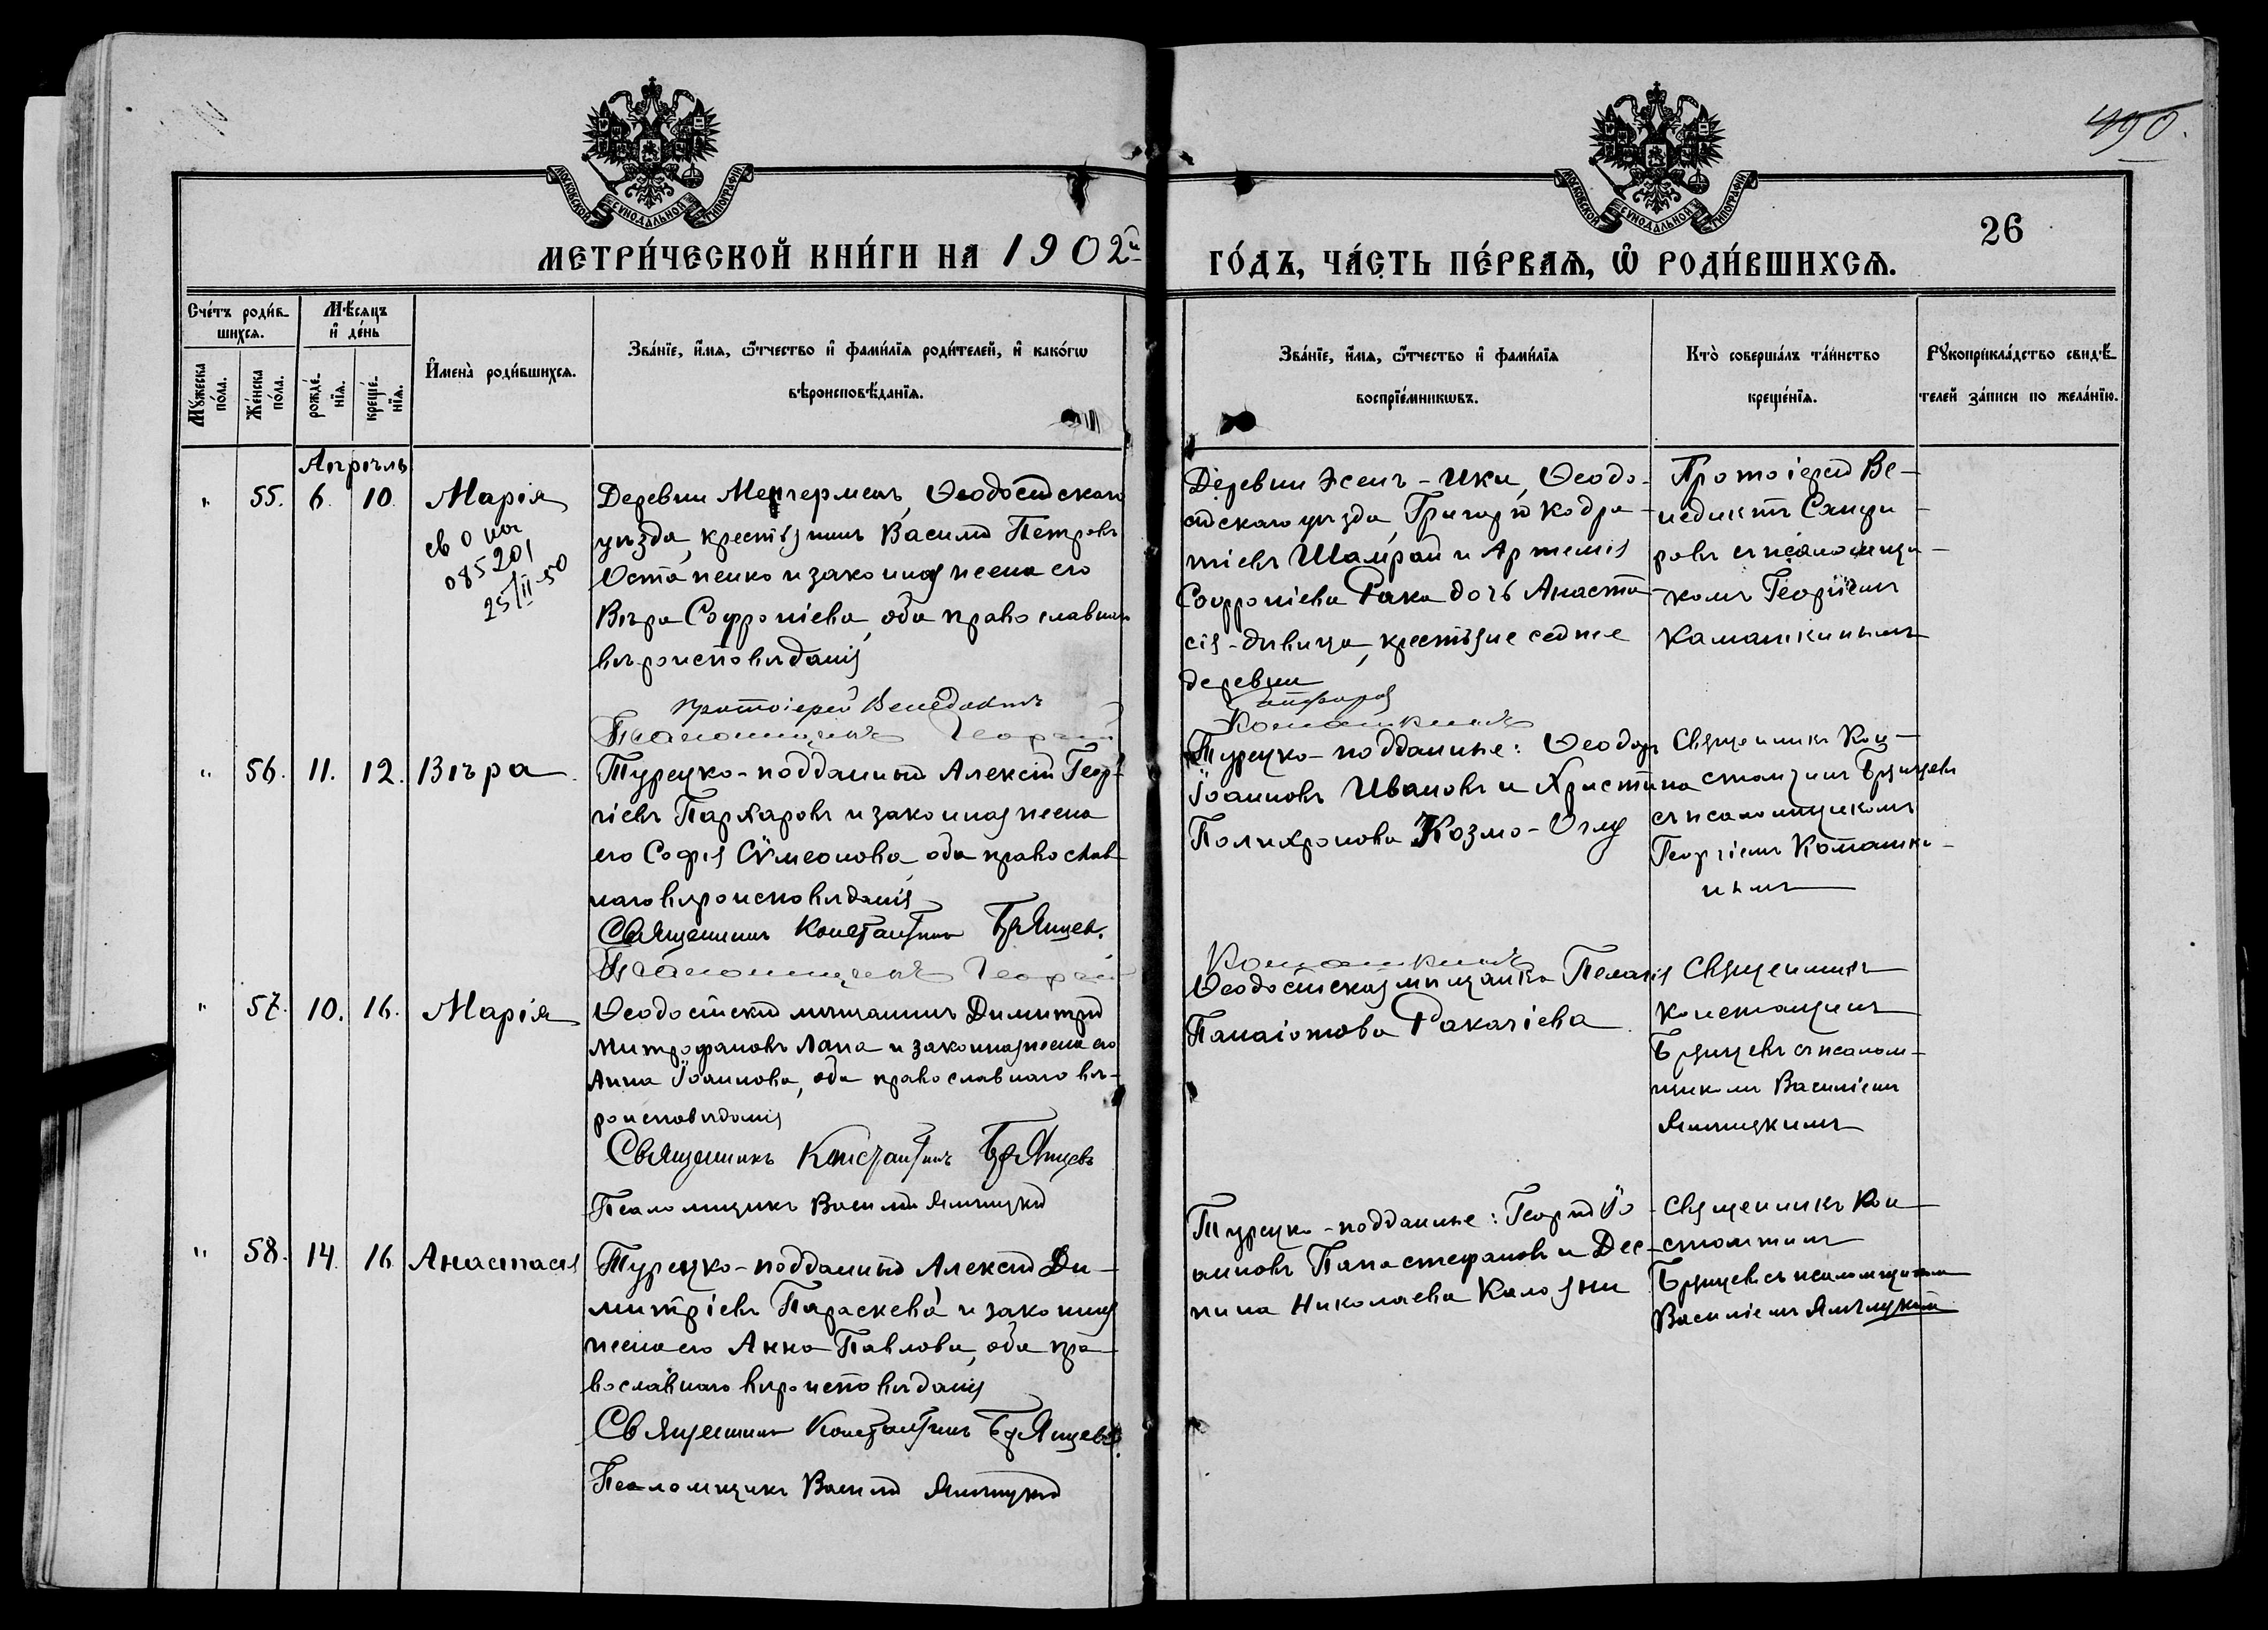 490.
МОСКОВСКОЙ СѴНОДАЛЬНОЙ ТИПОГРАФІИ
МОСКОВСКОЙ СѴНОДАЛЬНОЙ ТИПОГРАФІИ
26
МЕТРИ́ЧЕСКОЙ КНИ́ГИ НА 1902й
ГО́ДЪ, ЧА́СТЬ ПЕ́РВАѦ, Ѡ҆ РОДИ́ВШИХСѦ.
Сче́тъ роди́в-
шихсѧ.
Мꙋ́жеска по́ла.
Же́нска по́ла.
Мѣ́сѧцъ
и҆ де́нь
рожде́-
нїѧ.
креще́-
нїѧ.
И҆мена̀ роди́вшихсѧ.
Зва́нїе, и҆́мѧ, ѻ҆́тчество и҆ фами́лїѧ роди́телей, и҆ како́гѡ
вѣроисповѣ́данїѧ.
Зва́нїе, и҆́мѧ, ѻ҆́тчество и҆ фами́лїѧ
воспрїе́мникѡвъ.
Кто̀ соверша́лъ та́инство
креще́нїѧ.
Рꙋкоприкла́дство свидѣ́-
телей за́писи по жела́нїю.
Апрѣль
" 55. 6. 10. Марія
св о
085201
25/II-50
Деревни Менгермень, Ѳеодосійскаго
уѣзда, крестьянинъ Василій Петровъ
Остапенко и законная жена его
Вѣра Софроніева, оба православнаго
вѣроисповѣданія
Протоіерей Венедиктъ
Псаломщикъ Георгій
Деревни Эсенъ-Ики, Ѳеодо-
сійскаго уѣзда, Григорій Кодра-
тіевъ Шамрай и Артемія
Софроніева Рака дочь Анаста-
сія-дѣвица, крестьяне седнее
деревни
Комашкинъ
Протоіерей Ве-
недиктъ Санфи-
ровъ съ псаломщи-
комъ Георгіемъ
Камашкинымъ
" 56. 11. 12. Вѣра
Турецко-подданный Алексій Геор-
гіевъ Пархаровъ и законная жена
его Софія Сѵмеонова, оба православ-
наго вѣроисповѣданія
Священникъ Константинъ Брянцев.
Псаломщикъ Георгій
Турецко-подданные: Ѳеодоръ
Іоанновъ Ивановъ и Христина
Полихронова Козмо-Оглу
Комашкинъ
Священникъ Кон-
стантинъ Брянцевъ
съ псаломщикомъ
Георгіемъ Комашки-
нымъ
" 57. 10. 16. Марія
Ѳеодосійскій мѣщанинъ Димитрій
Митрофановъ Лапа и законная жена его
Анна Іоаннова, оба православнаго вѣ-
роисповѣданія
Священникъ Константинъ Брянцевъ
Псаломщикъ Василій
Ѳеодосійская мѣщанка Пелагія
ПанаіотоваРакачіева
Священникъ
Константинъ
Брянцевъ съ псалом-
щикомъ Василіемъ
" 58. 14. 16. Анастасія
Турецко-подданный Алексій Ди-
митріевъ Параскева и законная
жена его Анна Павлова, оба пра-
вославнаго вѣроисповѣданія
Священникъ Константинъ Брянцевъ.
Псаломщикъ Василій
Турецко-подданные: Георгій Іо-
анновъ Папастефановъ и Дес-
пина Николаева Калояни
Священникъ Кон-
стантинъ
Брянцевъ съ псаломщикомъ
Василіемъ